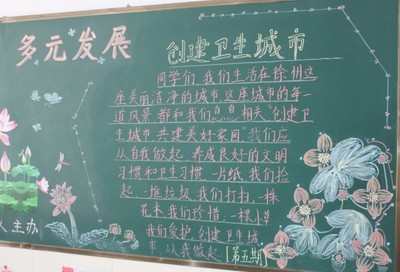 多元发展
创建卫生城市
同学们 我们生活在徐州这
座美丽洁净的城市 这座城市的每一
道风景 都和我们息息相关 "创建卫
生城市 共建美好家园" 我们应
从自我做起 养成良好的文明
习惯和卫生习惯 一片纸我们捡
起 一桩垃圾我们打扫 一株
花木我们珍惜 一棵小草
我们爱护 创建卫生城
市 从我做起
[第五期]
人主办